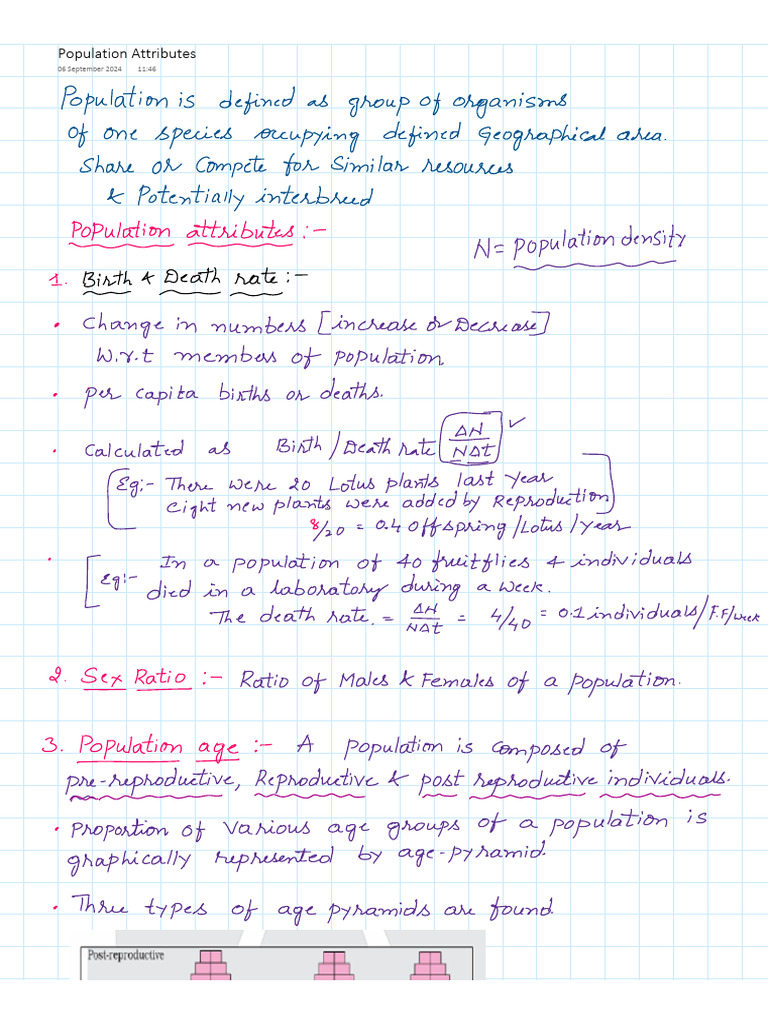 Population Attributes
06 September 2024 11:46
Population is defined as group of organisms
of one species occupying defined Geographical area.
Share or Compete for Similar resources
& Potentially interbreed
Population attributes :-
N = population density
1. Birth & Death rate :-
• Change in numbers [increase or Decrease]
W.r.t members of population
• per capita births or deaths.
• Calculated as Birth / Death rate ΔN/NΔt ✓
Eg:- There were 20 Lotus plants last year
Eight new plants were added by Reproduction.
8/20 = 0.4 offspring / Lotus / year
• Eg:- In a population of 40 fruitflies 4 individuals
died in a laboratory during a week.
The death rate. = ΔN/NΔt = 4/40 = 0.1 individuals / F.F/week
2. Sex Ratio :- Ratio of Males & Females of a population.
3. Population age :- A population is composed of
pre-reproductive, Reproductive & post reproductive individuals.
• Proportion of various age groups of a population is
graphically represented by age-pyramid.
• Three types of age pyramids are found.
Post-reproductive